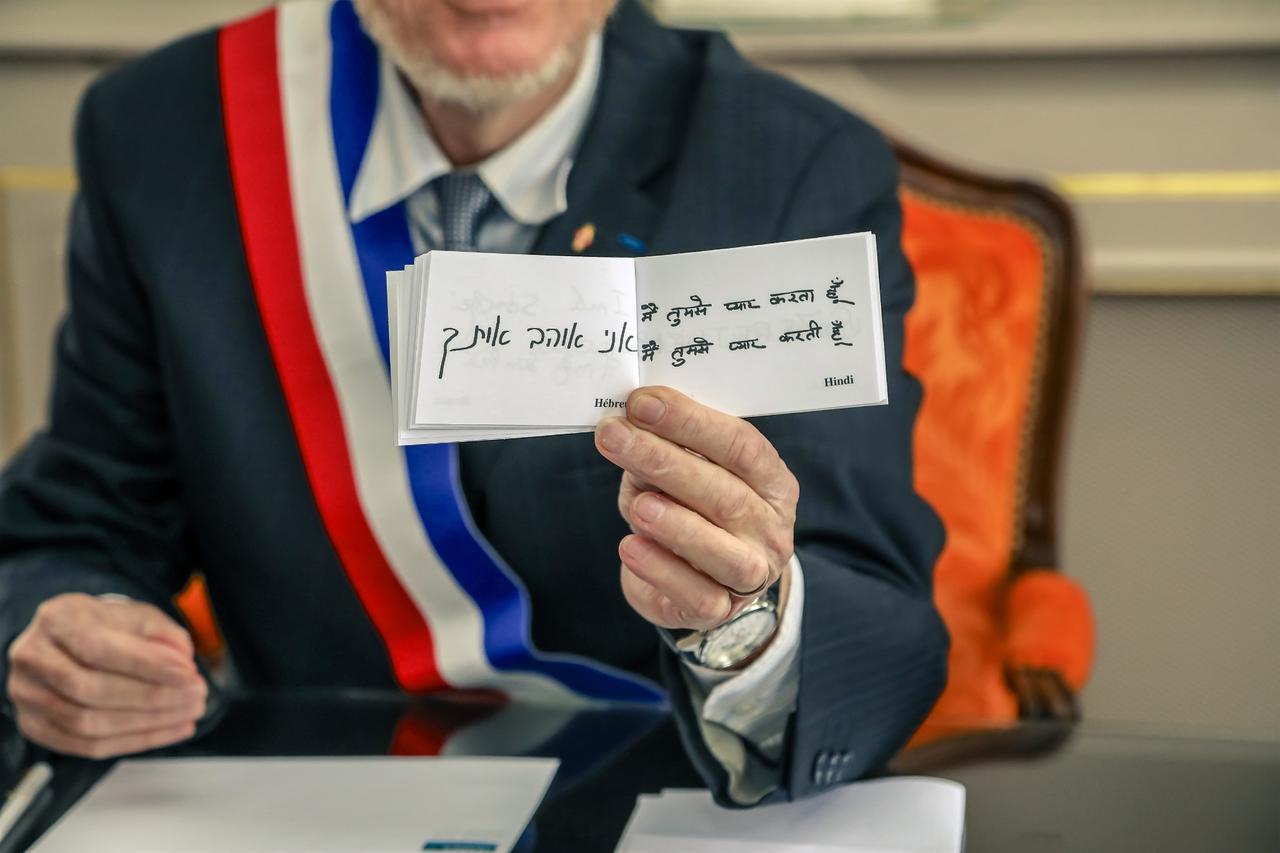 אני אוהב אותך
Hébreu
मैं तुमसे प्यार करता हूँ
मैं तुमसे प्यार करती हूँ
Hindi